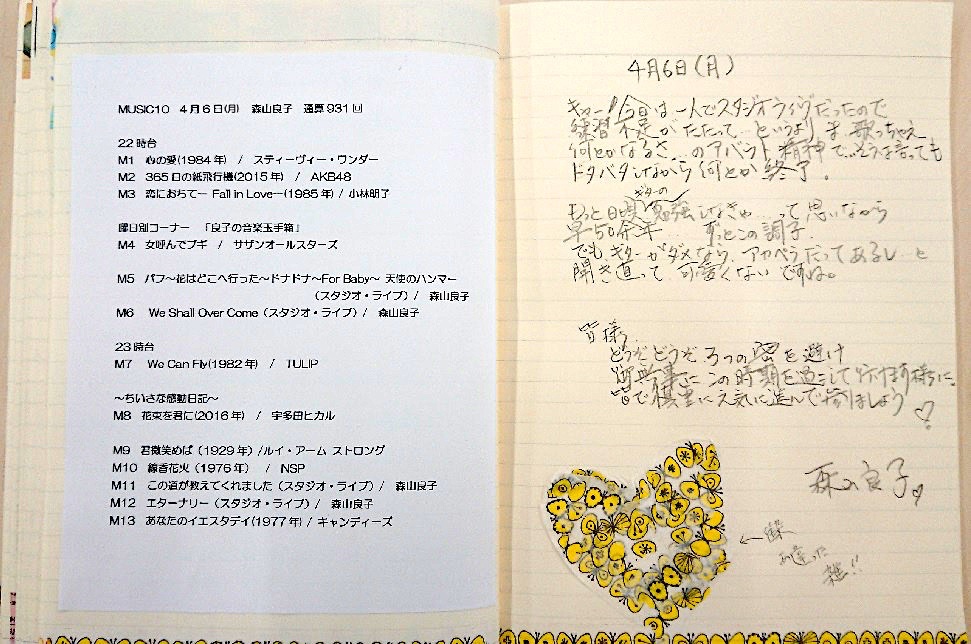 MUSIC10　４月６日(月)　森山良子　通算931回
22時台
M1　心の愛(1984年)　/　スティーヴィー・ワンダー
M2　365日の紙飛行機(2015年)　/　AKB48
M3　恋におちて― Fall in Love―(1985年) / 小林明子
曜日別コーナー　「良子の音楽玉手箱」
M4　女呼んでブギ　/　サザンオールスターズ
M5　パフ～花はどこへ行った～ドナドナ～For Baby～ 天使のハンマー
(スタジオ・ライブ) /　森山良子
M6　We Shall Over Come（スタジオ・ライブ）/　森山良子
23時台
M7　We Can Fly(1982年)　/　TULIP
～ちいさな感動日記～
M8　花束を君に(2016年)　/　宇多田ヒカル
M9　君微笑めば（1929年）/ルイ・アーム ストロング
M10　線香花火（1976年）　/　NSP
M11　この道が教えてくれました（スタジオ・ライブ）/　森山良子
M12　エターナリー（スタジオ・ライブ）/　森山良子
M13　あなたのイエスタデイ(1977年) / キャンディーズ
4月6日（月）
キャー! 今日は一人でスタジオライブだったので
練習不足がたたって…というより ま 歌っちゃえ
何とかなるさ…のアバウト精神で…そうは言っても
ドタバタしながら何とか終了.
もっと日頃ギターの勉強しなきゃ…って思いながら
早50余年… ずっとこの調子.
でも ギターがダメなら、アカペラだってあるし…と
開き直って 可愛くないですね。
皆様…
どうぞどうぞ 3つの密を避け
無事に この時期を過ごして行けます様に.
皆で 元気に進んで参りましょう♡
森山良子
←